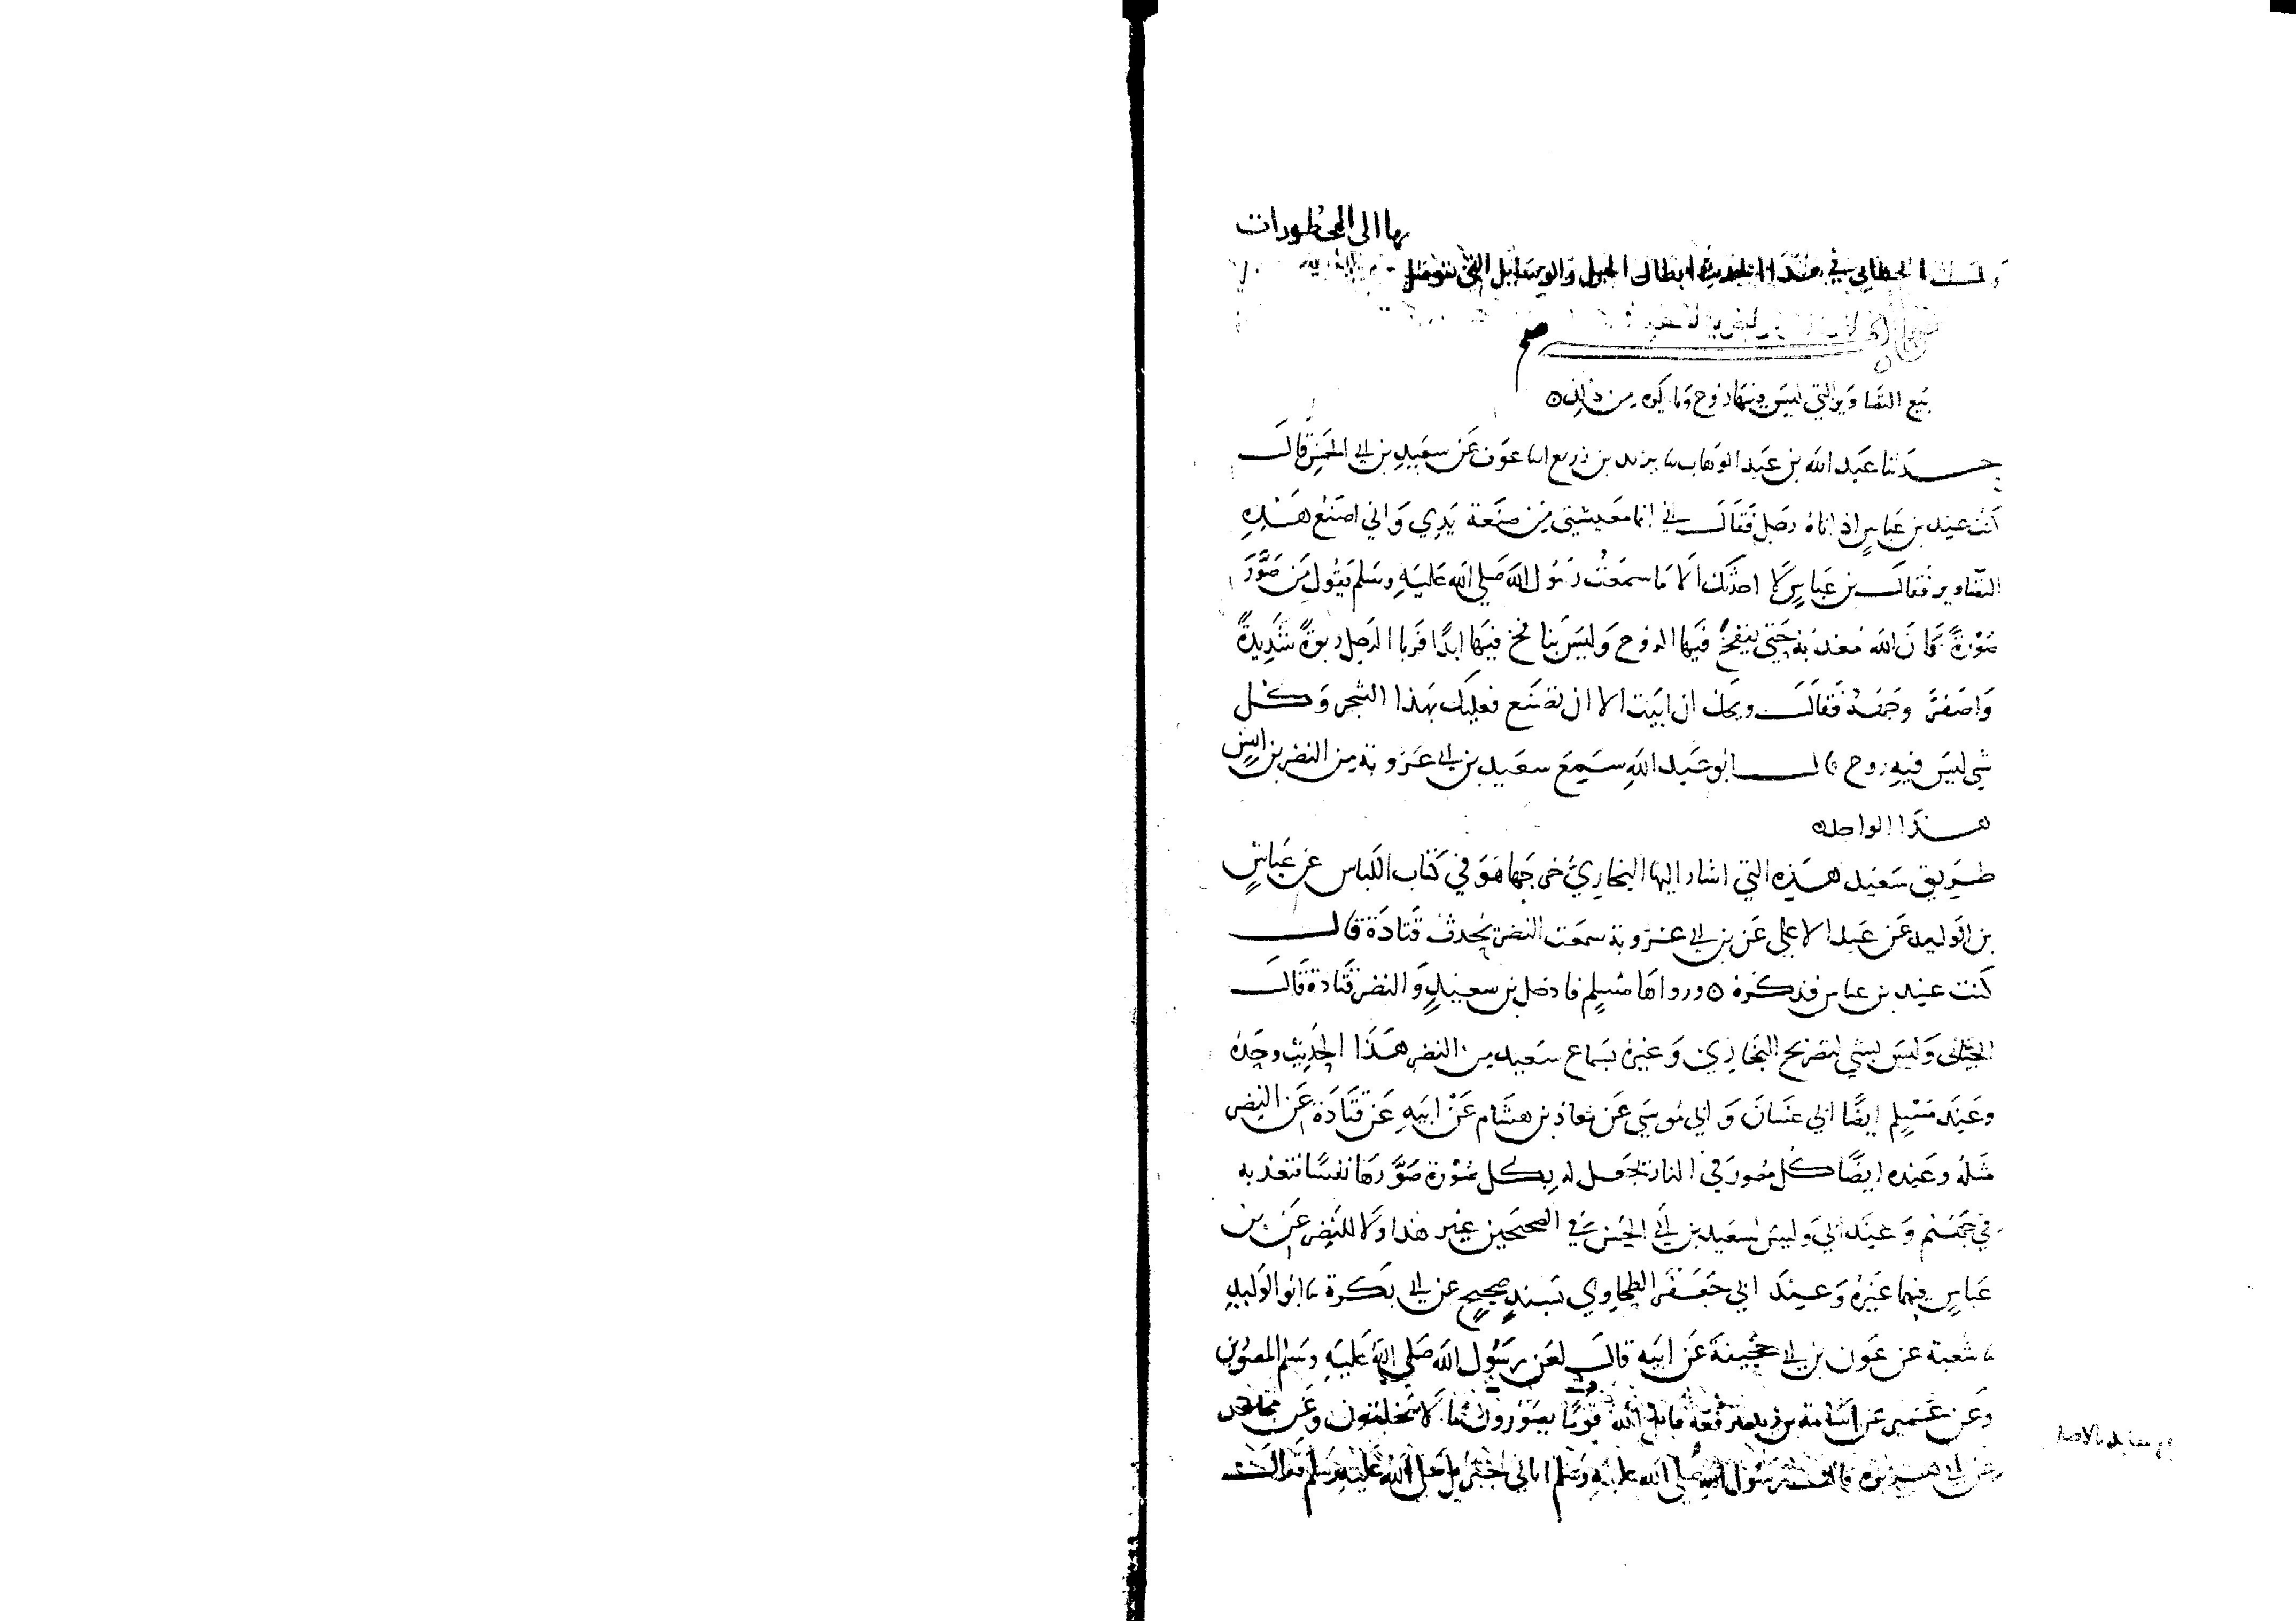 بها الى المحظورات
قال الخطابي في هذا الحديث ابطال الحيل والوسايل التي يتوصل
بيع التصاوير التي ليس فيها روح وما يكره من ذلك
حدثنا عبد الله بن عبد الوهاب ثنا يزيد بن زريع انا عوف عن سعيد بن ابي الحسن قال
كنت عند بن عباس اذ اتاه رجل فقال اني انما معيشتي من صنعة يدي واني اصنع هذه
التصاوير فقال بن عباس لا احدثك الا ما سمعت رسول الله صلي الله عليه وسلم يقول من صور
صورة فان الله معذبه حتي ينفخ فيها الروح وليس بنافخ فيها ابدا فربا الرجل ربوة شديدة
واصفر وجهه فقال ويحك ان ابيت الا ان تصنع فعليك بهذا الشجر وكل
شي ليس فيه روح قال ابو عبد الله سمع سعيد بن ابي عروبة من النضر بن انس
هذا الواحد
طريق سعيد هذه التي اشار اليها البخاري خرجها هو في كتاب اللباس عن عياش
بن الوليد عن عبد الاعلي عن بن ابي عروبة سمعت النضر يحدث قتادة قال
كنت عند بن عباس فذكره ورواها مسلم فادخل بن سعيد والنضر قتادة قال
الجياني وليس بشي لتصريح البخاري وغيره بسماع سعيد من النضر هذا الحديث وحده
وعند مسلم ايضا ابي غسان وابي موسي عن معاذ بن هشام عن ابيه عن قتادة عن النضر
مثله وعنده ايضا كل مصور في النار يجعل له بكل صورة صورها نفسا فتعذبه
في جهنم وعند ابي وليس لسعيد بن ابي الحسن في الصحيحين غير هذا ولا للنضر عن بن
عباس فيهما غيره وعند ابي جعفر الطحاوي بسند صحيح عن ابي بكرة ثنا ابو الوليد
ثنا شعبة عن عون بن ابي جحيفة عن ابيه قال لعن رسول الله صلي الله عليه وسلم المصورين
وعن عمير عن اسامة بن زيد يرفعه قاتل الله قوما يصورون ما لا يخلقون وعن مجاهد
عن ابي هريرة قال قال رسول الله صلى الله عليه وسلم اتاني جبريل صلى الله عليه وسلم فقال